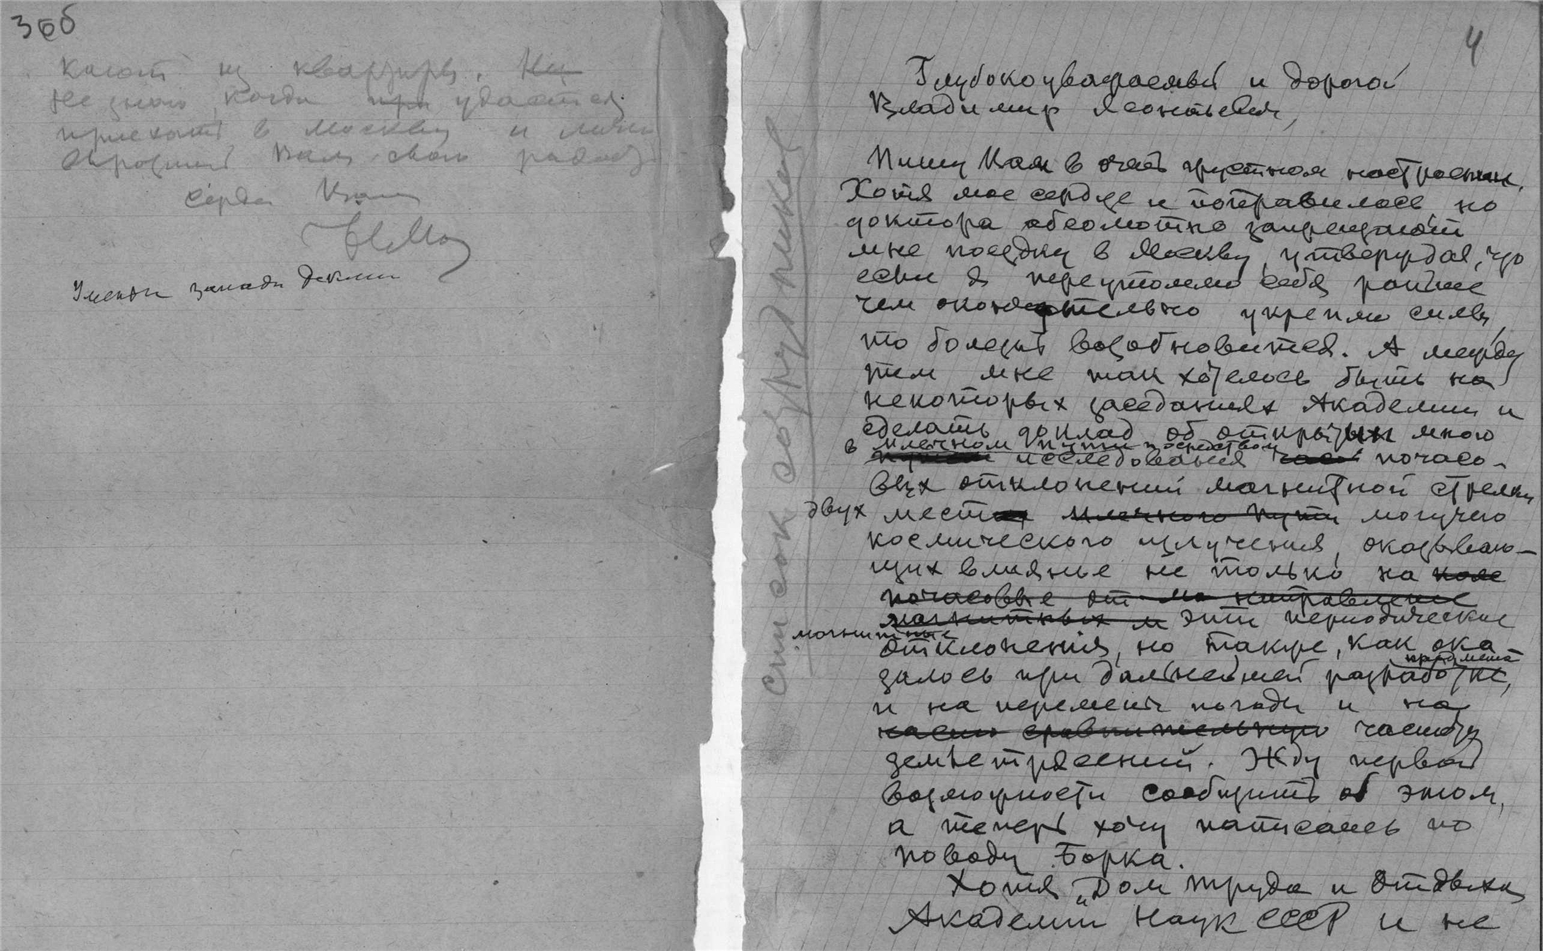 366
из квартиры.
не знаю когда удастся
приехать в Москву и лично
Вам свою
4
Глубокоуважаемый и дорогой
Владимир Леонтьевич,
Пишу Вам в очень грустном настроении.
Хотя мое сердце и поправилось но
доктора абсолютно запрещают
мне поездку в Москву, утверждая, что
если я переутомлю себя раньше
чем окончательно укреплю силы,
то болезнь возобновится. А между
тем мне так хотелось быть на
некоторых заседаниях Академии и
сделать доклад об открытии мною
в млечном пути посредством
исследования почасо-
вых отклонений магнитной стрелки
двух мест млечного пути могучего
космического излучения, оказываю-
щих влиянье не только на поле
почасовые от направление
магнитных и эти периодические
магнитные
отклонения, но также, как ока
залось при дальнейшей разработке,
и на перемены погоды и на
сравнительную частоту
землетрясений. Жду первой
возможности сообщить об этом,
а теперь хочу написать по
поводу Борка.
Хотя „Дом труда и отдыха
Академии Наук СССР и не
список сотрудников